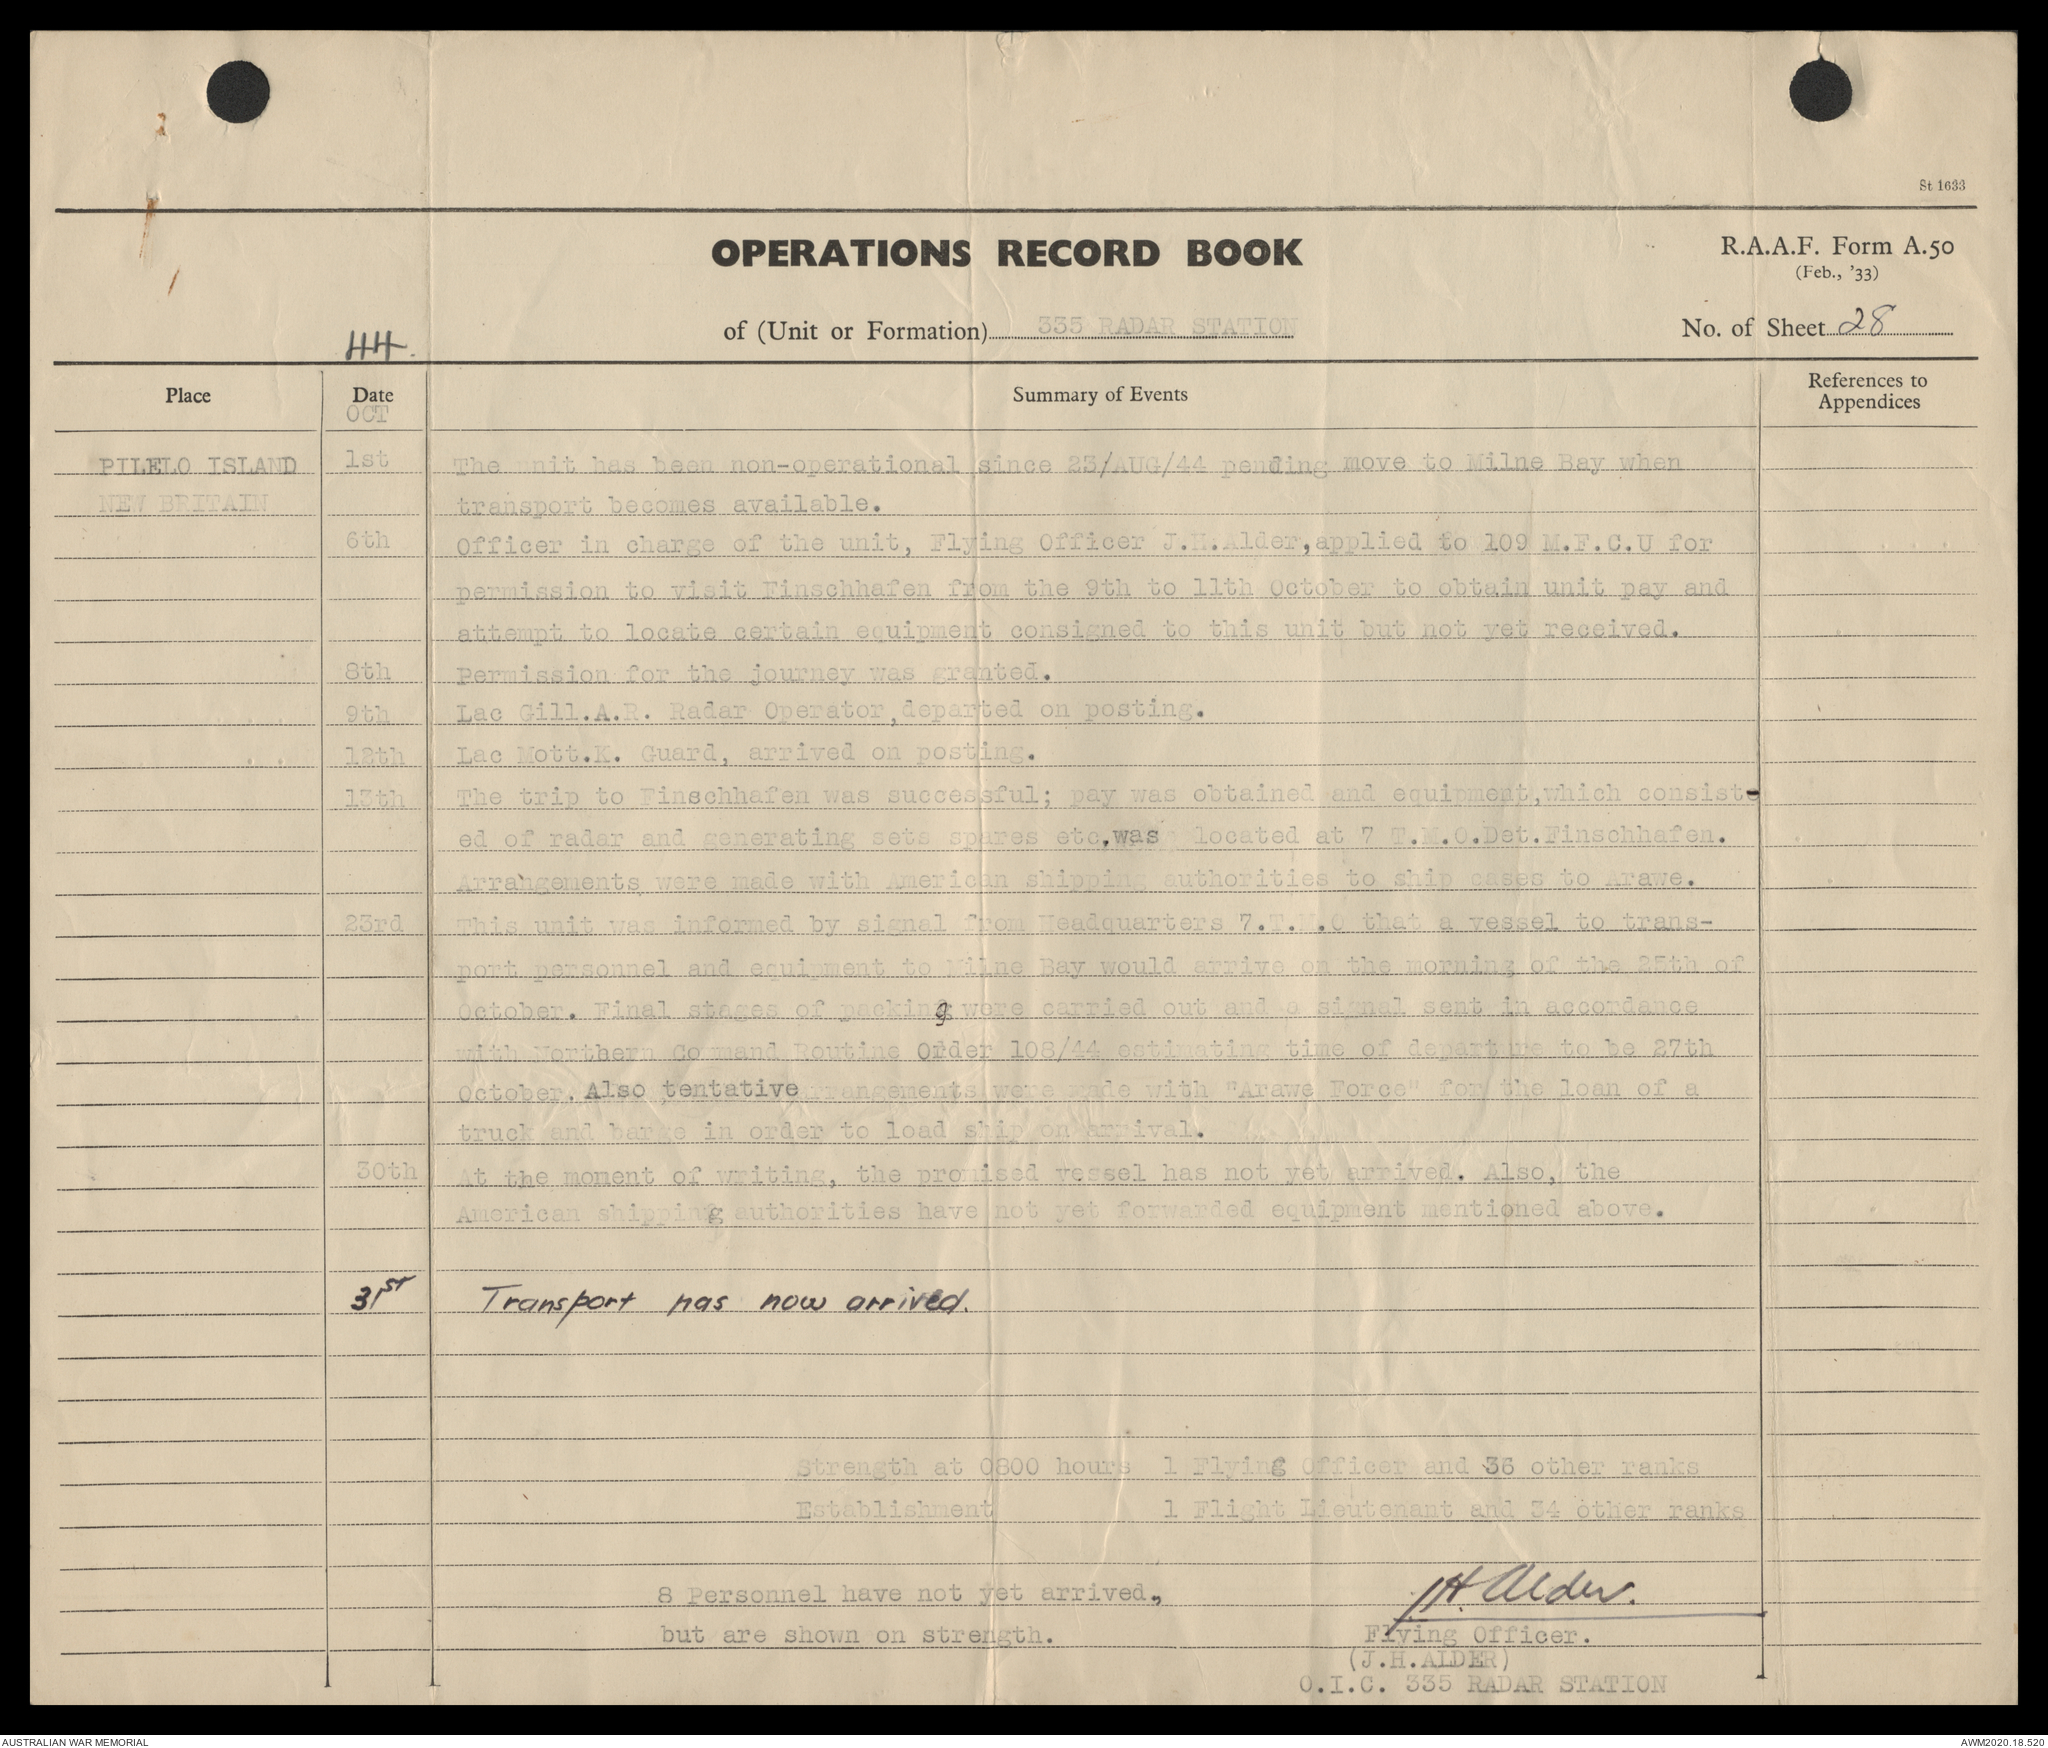 St 1633
OPERATIONS RECORD BOOK
R.A.A.F. Form A.50
(Feb., '33)
of (Unit or Formation) 335 RADAR STATION
No. of Sheet 28
44.
Place
Date
Summary of Events
References to
Appendices
OCT
PILELO ISLAND 1st The unit has been non-operational since 23/AUG/44 pending move to Milne Bay when
NEW BRITAIN transport becomes available.
6th Officer in charge of the unit, Flying Officer J.H.Alder,applied to 109 M.F.C.U for
permission to visit Finschhafen from the 9th to 11th October to obtain unit pay and
attempt to locate certain equipment consigned to this unit but not yet received.
8th Permission for the journey was granted.
9th Lac Gill.A.R. Radar Operator,departed on posting.
12th Lac Mott.K. Guard, arrived on posting.
13th The trip to Finschhafen was successful; pay was obtained and equipment,which consist-
ed of radar and generating sets spares etc,was located at 7 T.M.O.Det.Finschhafen.
Arrangements were made with American shipping authorities to ship cases to Arawe.
23rd This unit was informed by signal from Headquarters 7.T.M.O that a vessel to trans-
port personnel and equipment to Milne Bay would arrive on the morning of the 25th of
October. Final stages of packing were carried out and a signal sent in accordance
with Northern Command Routine Order 108/44 estimating time of departure to be 27th
October. Also tentative arrangements were made with "Arawe Force" for the loan of a
truck and barge in order to load ship on arrival.
30th At the moment of writing, the promised vessel has not yet arrived. Also, the
American shipping authorities have not yet forwarded equipment mentioned above.
31st Transport has now arrived.
Strength at 0800 hours 1 Flying Officer and 36 other ranks
Establishment 1 Flight Lieutenant and 34 other ranks
8 Personnel have not yet arrived,
but are shown on strength.
J.H. Alder.
Flying Officer.
(J.H.ALDER)
O.I.C. 335 RADAR STATION
AUSTRALIAN WAR MEMORIAL
AWM2020.18.520